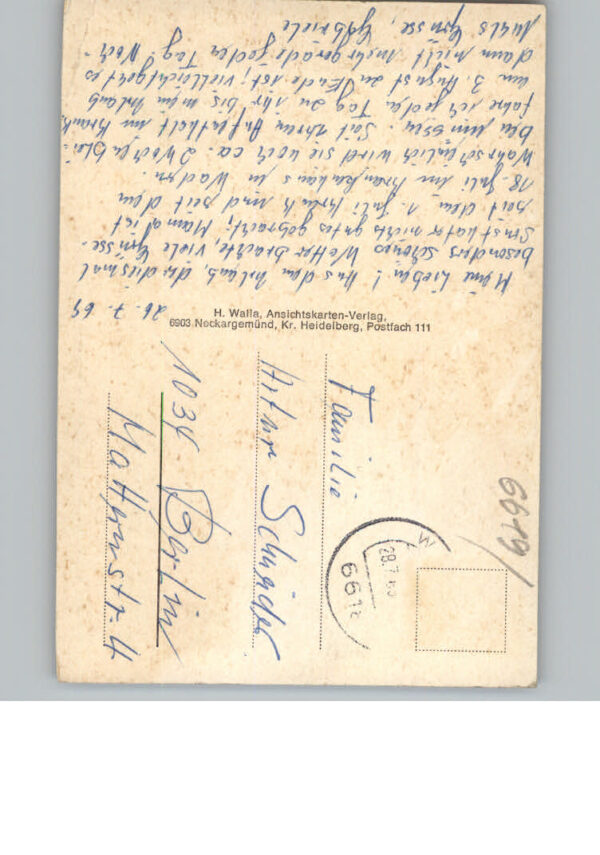 26. 7. 69
Meine Lieben! Aus dem Urlaub, der diesmal
besonders schönes Wetter brachte, viele Grüsse.
Sonst hat er nichts gutes gebracht; Mama ist
seit dem 1. Juli krank und seit dem
18. Juli im Krankenhaus in Wadern.
Wahrscheinlich wird sie noch ca. 2 Wochen blei-
ben müssen. Seit ihrem Aufenthalt im Krankh.
fahre ich jeden Tag zu ihr bis mein Urlaub
am 3. August zu Ende ist; vielleicht geht es
dann nicht mehr gerade jeden Tag. Noch-
mals Grüsse, Gabriele
H. Walla, Ansichtskarten-Verlag,
6903 Neckargemünd, Kr. Heidelberg, Postfach 111
6619
W
28.7.69
661
Familie
Artur Schröder
1034 Berlin
Matternstr. 4